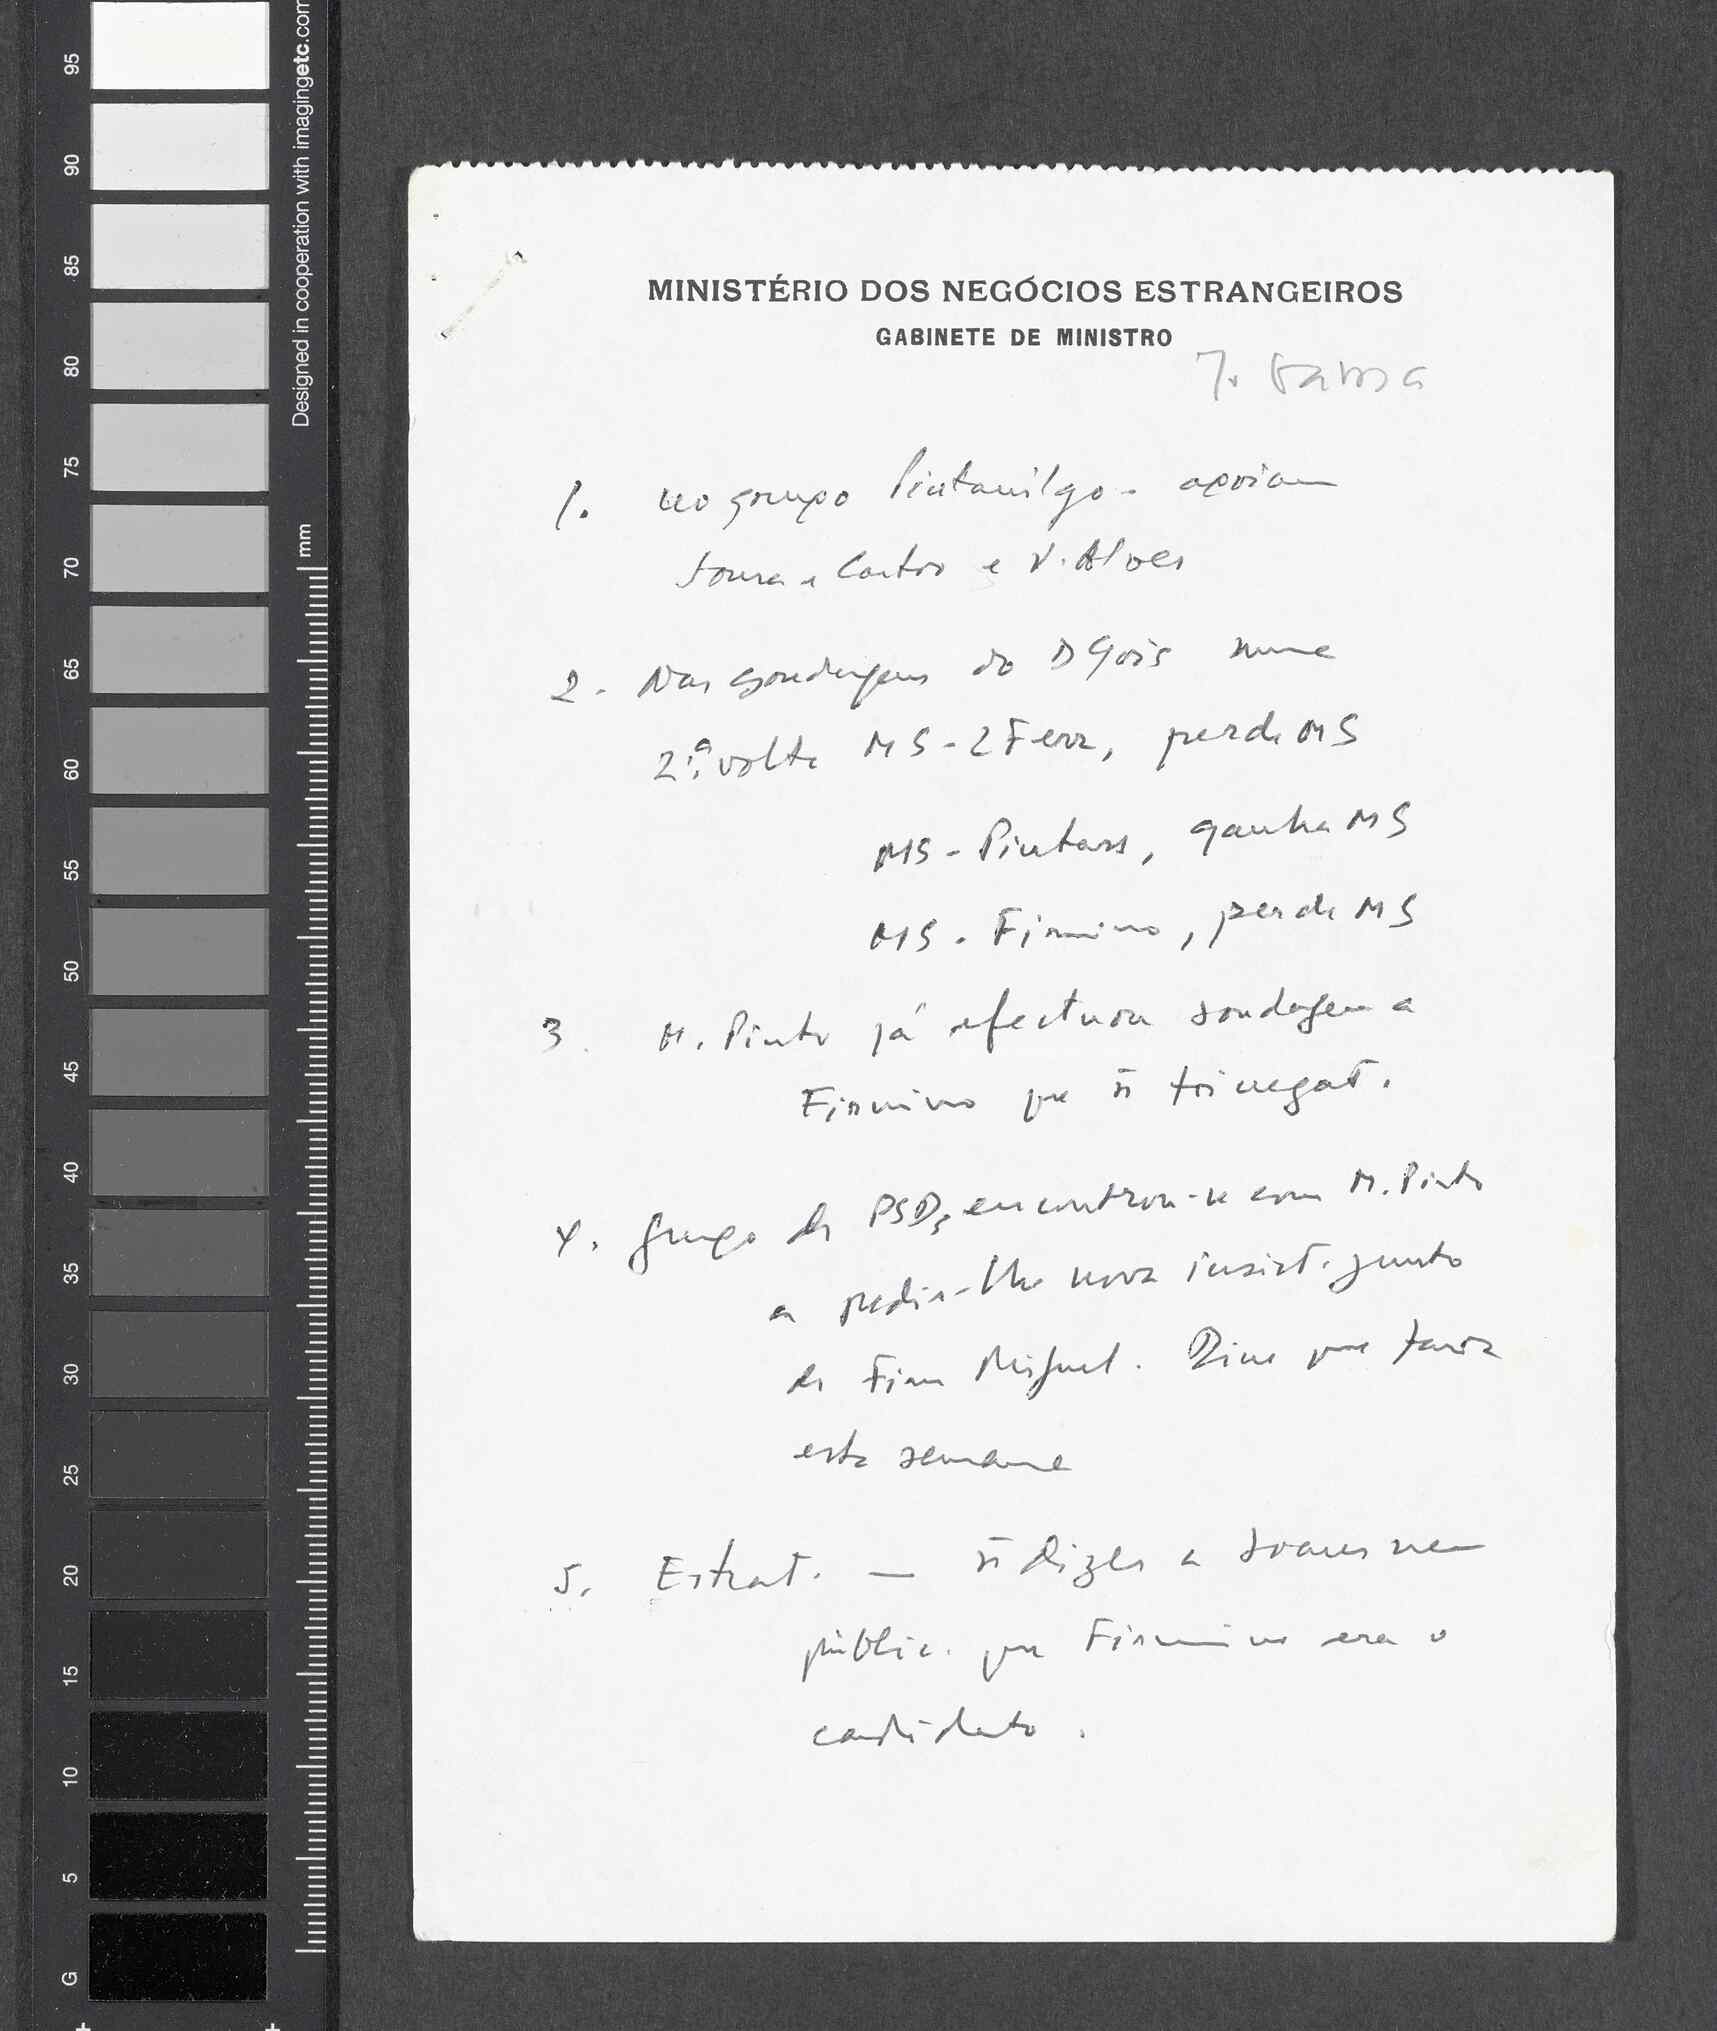 Designed in cooperation with imagingetc.com
mm
95
90
85
80
75
70
65
60
55
50
45
40
35
30
25
20
15
10
5
G
MINISTÉRIO DOS NEGÓCIOS ESTRANGEIROS
GABINETE DE MINISTRO
J. Gama
1. no grupo Pintasilgo - apoiam
Sousa e Castro e V. Alves
2 - Nas sondagens do D Góis numa
2.ª volta MS - 2 Ferr, perde MS
MS - Pintass, ganha MS
MS - Firmino, perde MS
3. M. Pinto já efectuou sondagem a
Firmino que ñ foi negat.
4. grupo de PSDs encontrou-se com M. Pinto
a pedir-lhe nova insist. junto
de Firm Miguel. Disse que faria
esta semana
5. Estrat. — ñ dizer a Soares nem
públic. que Firmino era o
candidato.